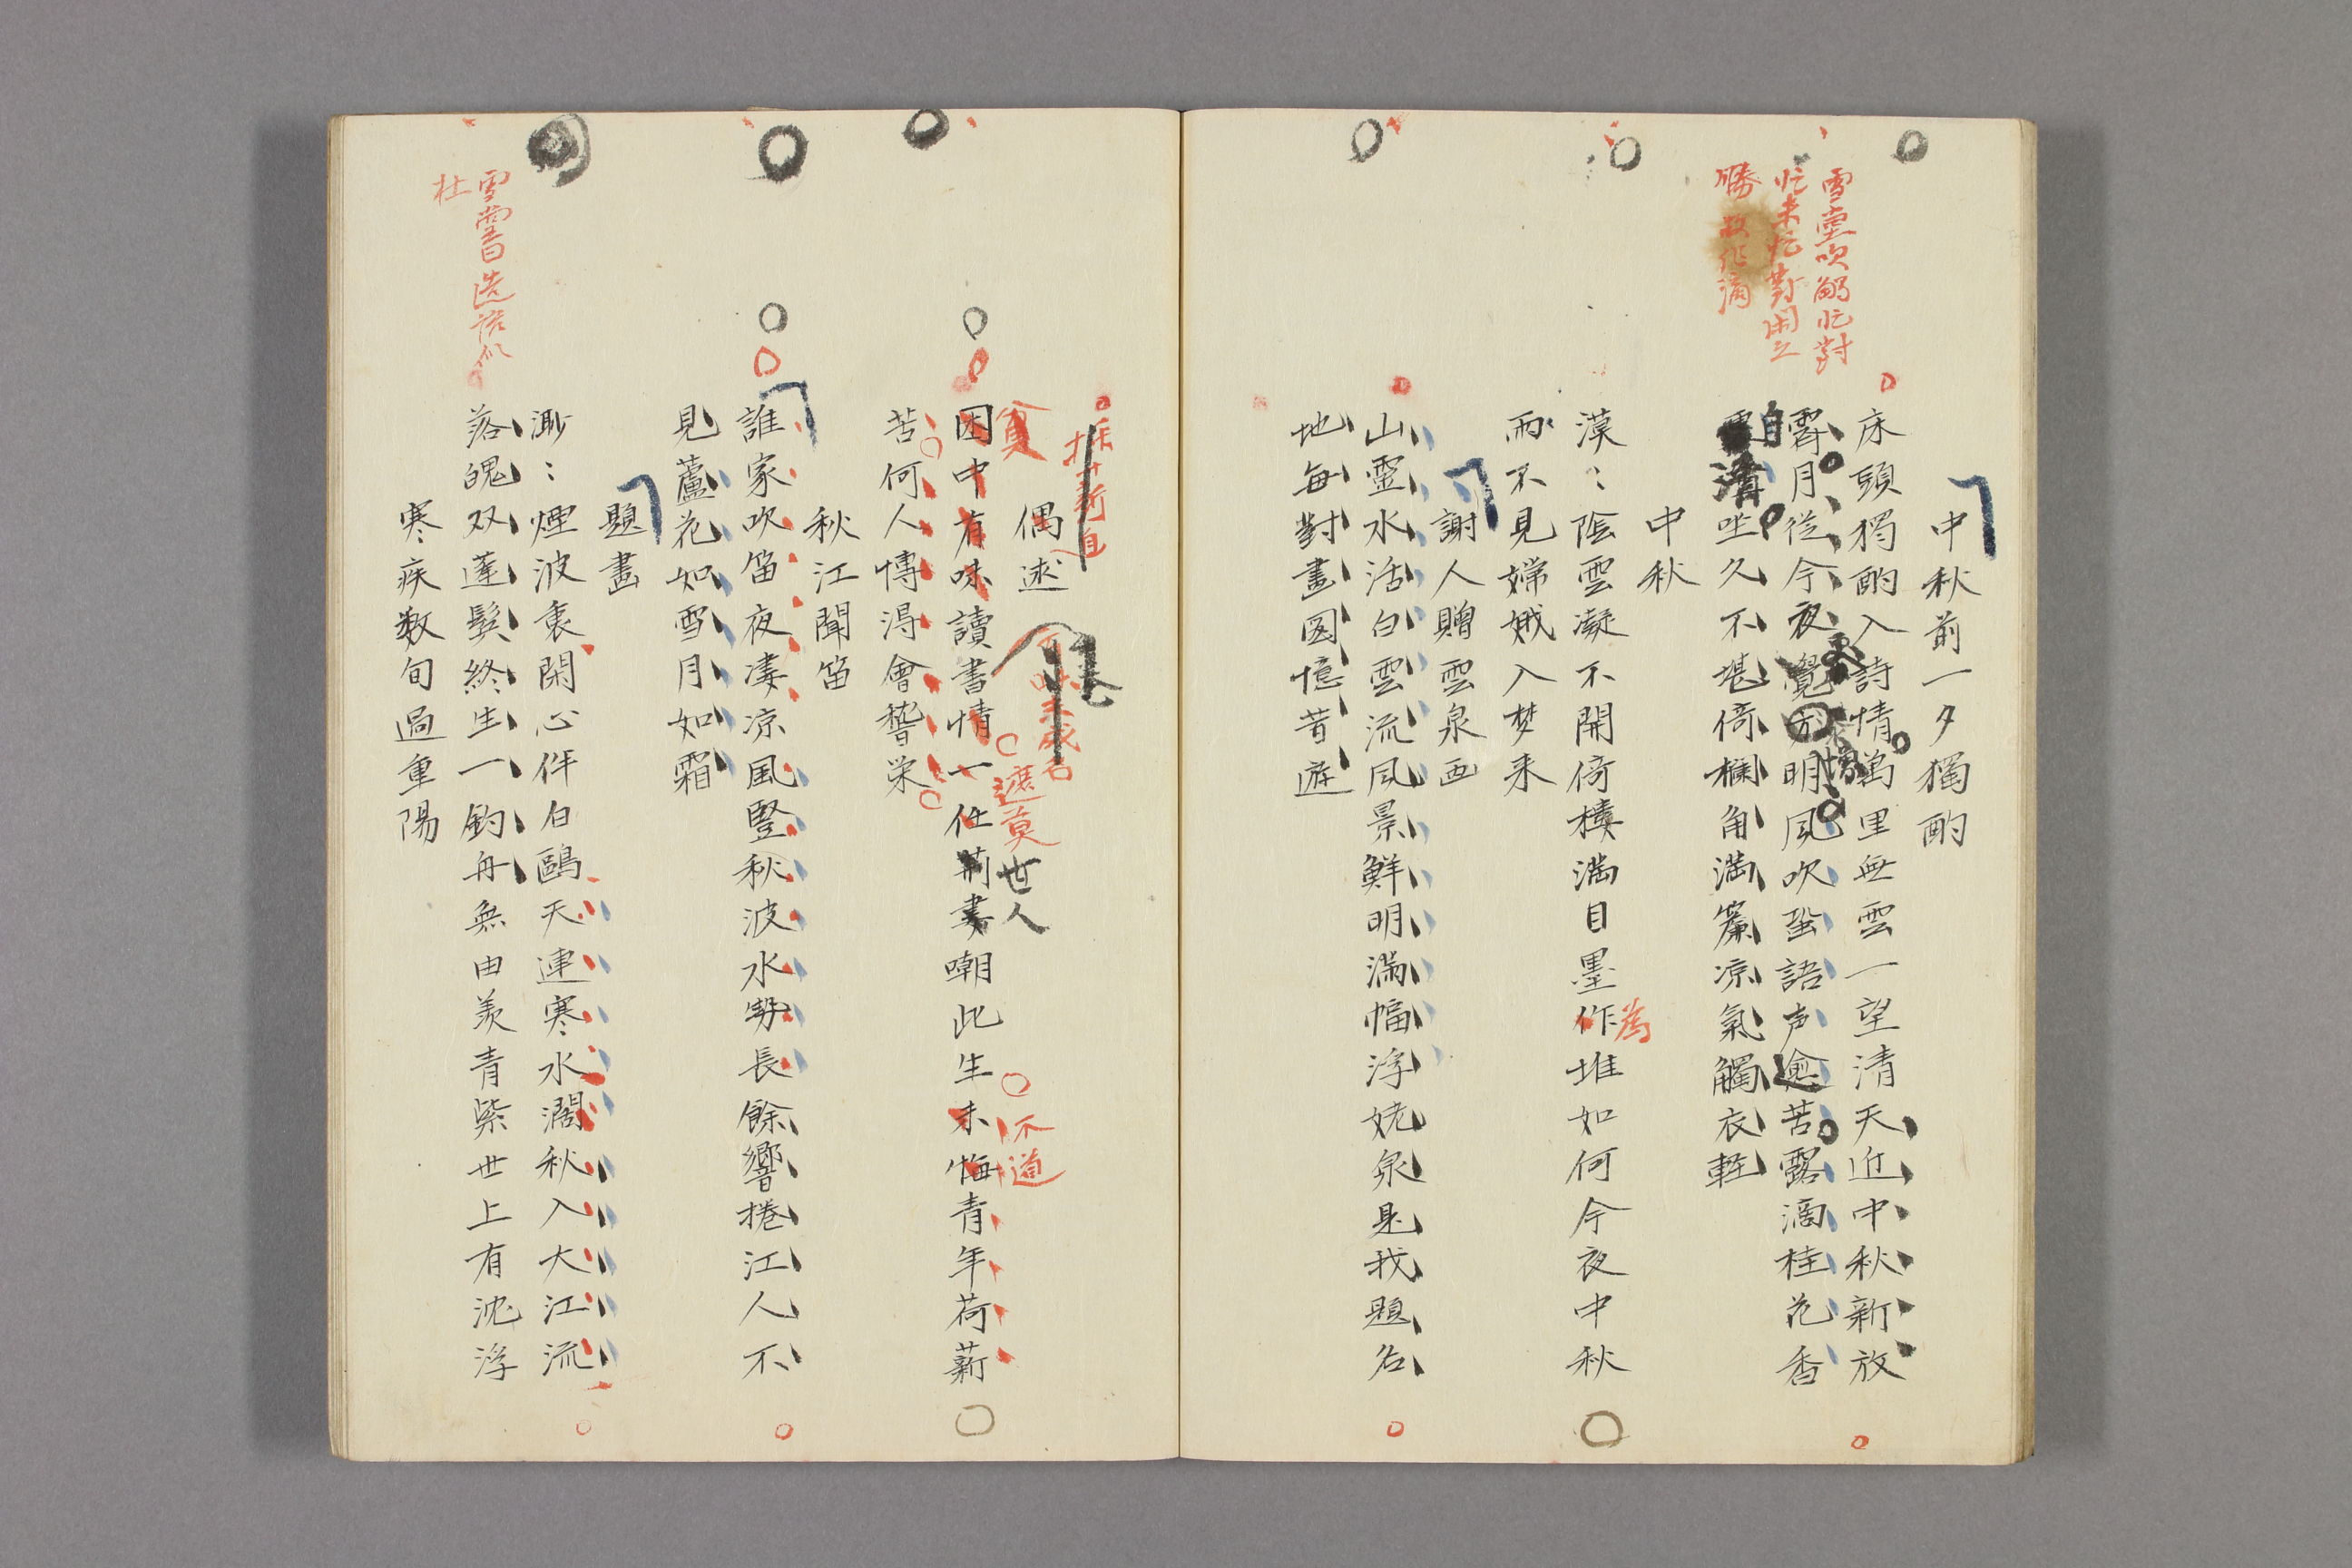 雪堂吹觴忙對
忙未忙對閑之
勝故作滴
中秋前一夕獨酌
床頭獨酌入詩情萬里無雲一望清天近中秋新放
霽月從今夜覺方明風吹蛩語声愈苦露滴桂花香
自清坐久不堪倚欄角満簾凉氣觸衣軽
中秋
漠〻陰雲凝不開倚樓満目墨作堆如何今夜中秋
為
雨不見嫦娥入梦来
謝人贈雲泉画
山靈水活白雲流風景鮮明満幅浮姥泉是我題名
地毎對畫図憶昔遊
採薪自
偶述
貧
遮莫
世人
不道
困中有味讀書情一任荊妻嘲此生未悔青年荷薪
苦何人博得會稽栄
秋江聞笛
誰家吹笛夜凄凉風豎秋波水勢長餘響捲江人不
見蘆花如雪月如霜
題畫
雪嘗曰造語似
杜
渺〻煙波裏閑心伴白鷗天連寒水濶秋入大江流
落魄双蓬髪終生一釣舟無由羨青紫世上有沈浮
寒疾数旬過重陽